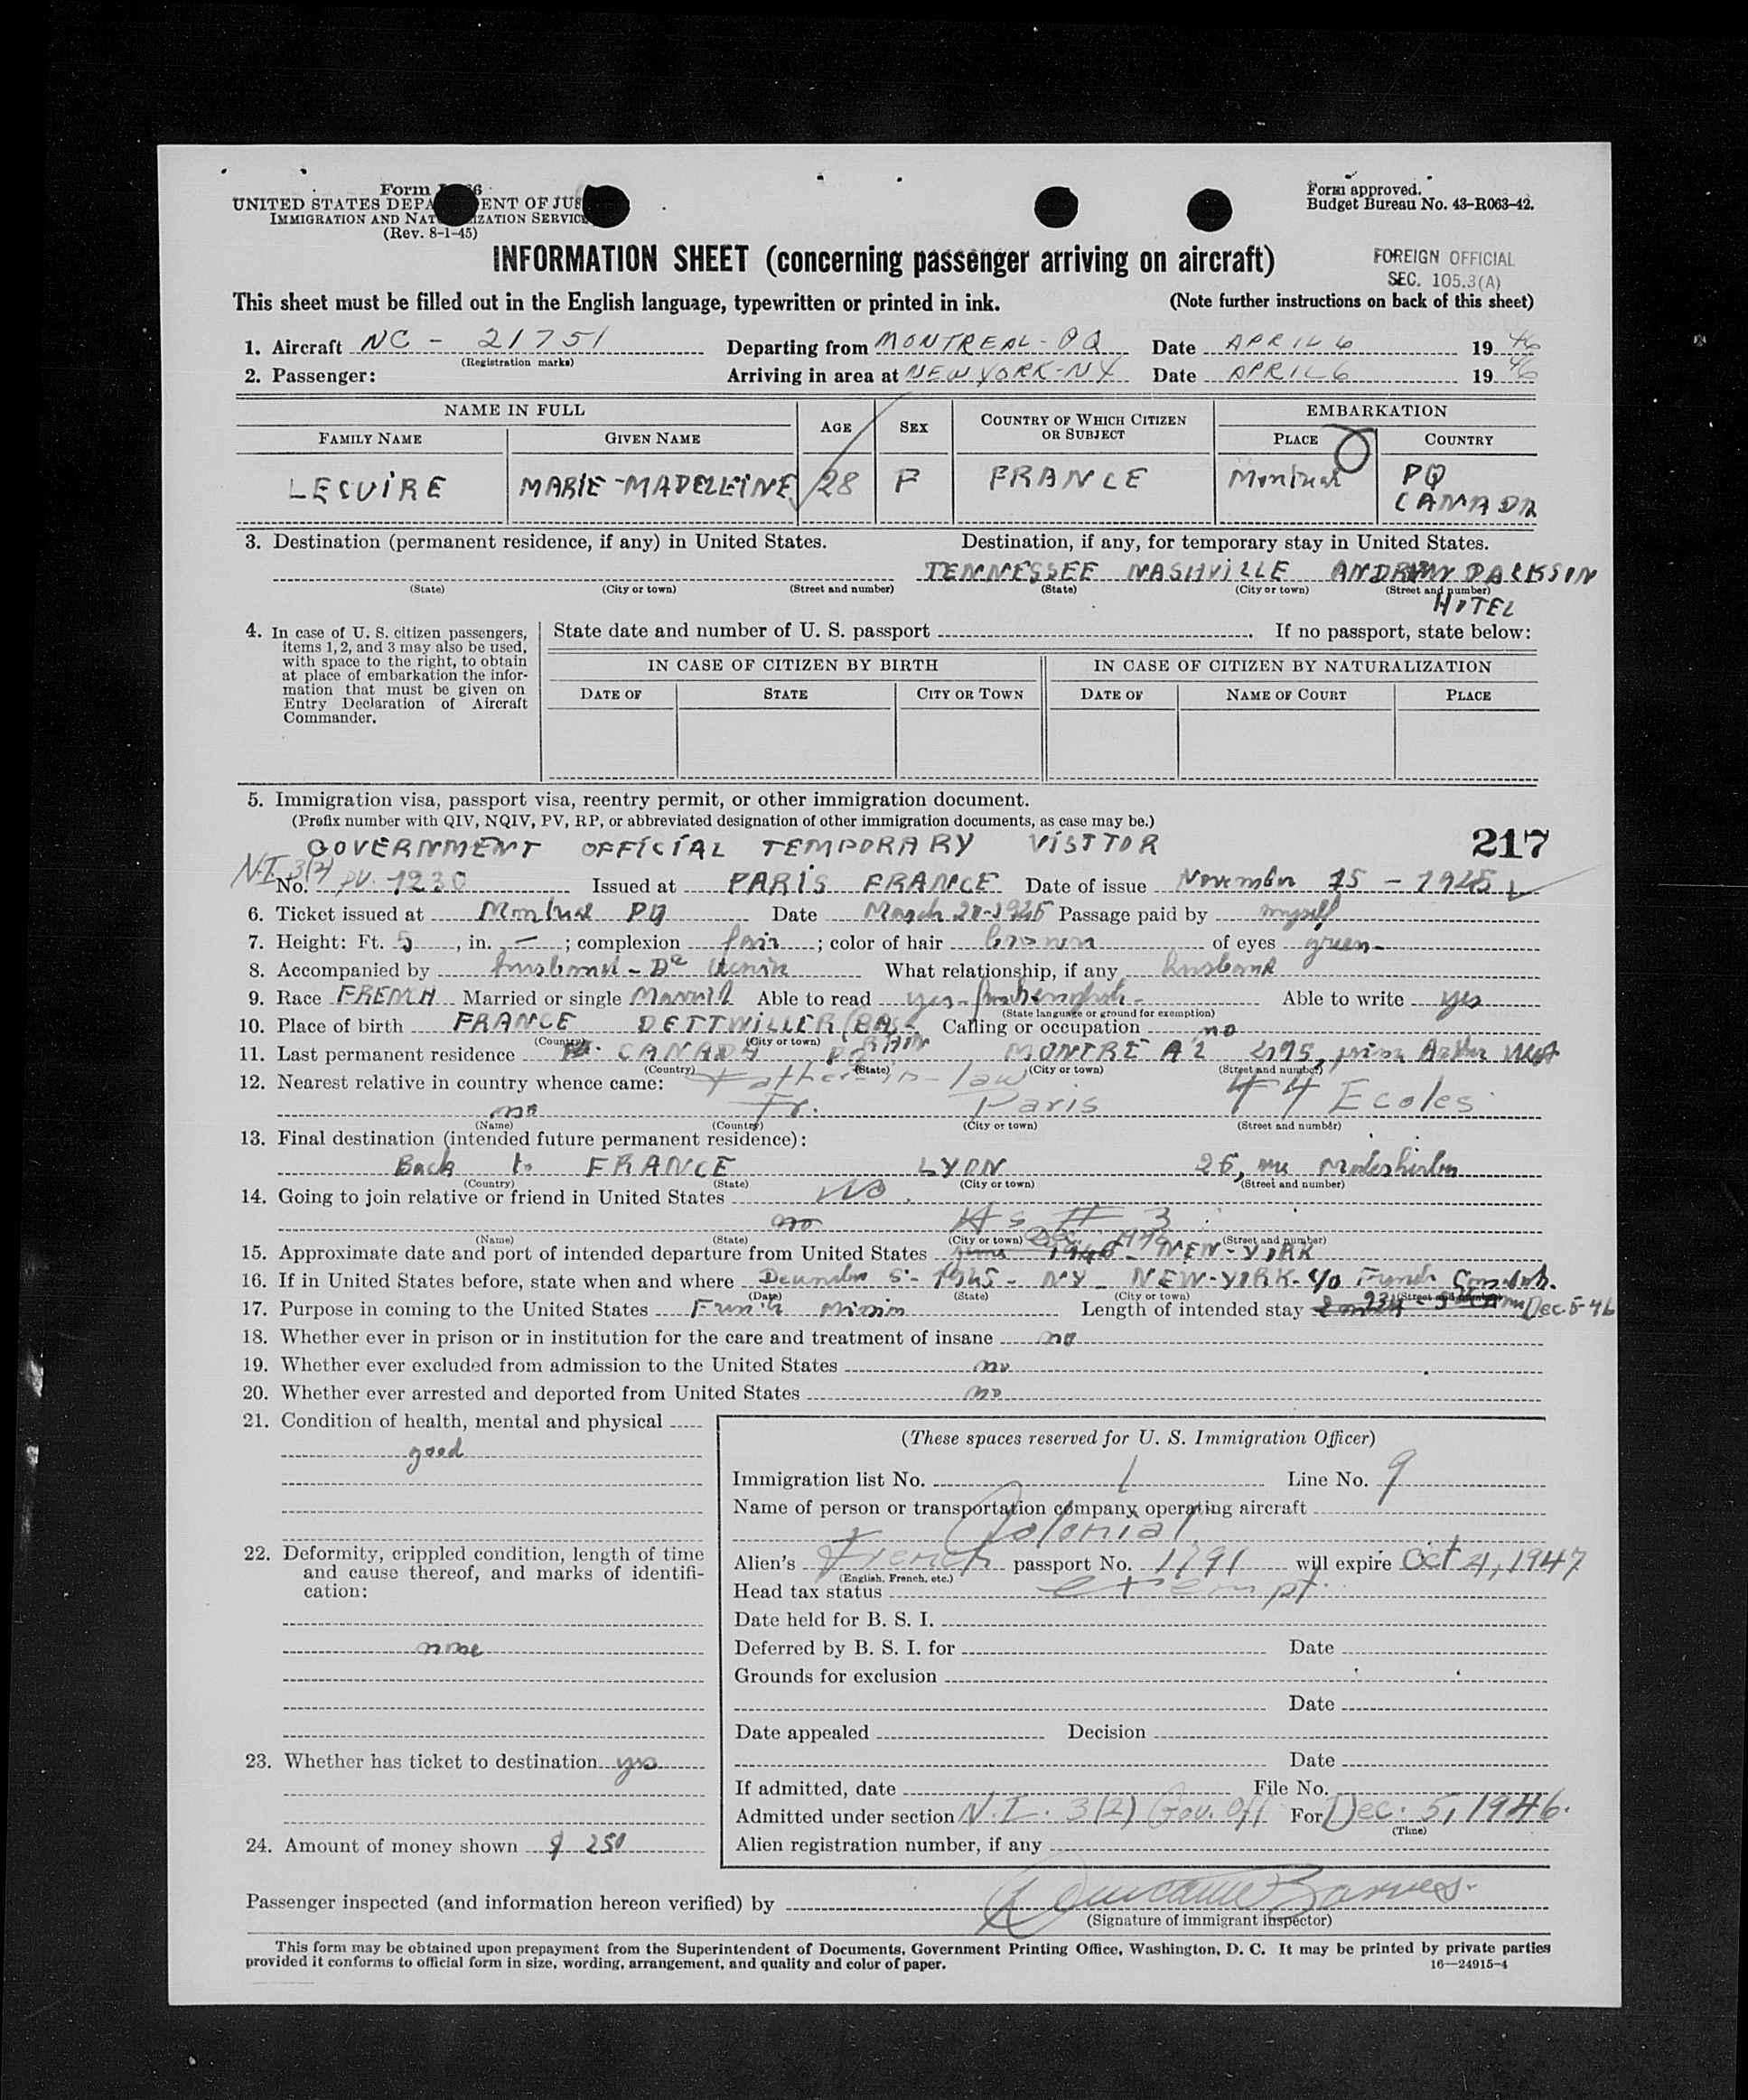 Form 6
UNITED STATES DEPA ENT OF JUS
IMMIGRATION AND NAT IZATION SERVICE
(Rev. 8-1-45)
Form approved.
Budget Bureau No. 43-R063-42.
INFORMATION SHEET (concerning passenger arriving on aircraft)
FOREIGN OFFICIAL
SEC. 105.3(A)
This sheet must be filled out in the English language, typewritten or printed in ink. (Note further instructions on back of this sheet)
1. Aircraft NC - 21751 Departing from MONTREAL - PQ Date APRIL 6 19 46
(Registration marks)
2. Passenger: Arriving in area at NEW YORK - NY Date APRIL 6 19 46
NAME IN FULL AGE SEX COUNTRY OF WHICH CITIZEN OR SUBJECT EMBARKATION
FAMILY NAME GIVEN NAME PLACE COUNTRY
LECUIRE MARIE-MADELEINE 28 F FRANCE Montreal PQ
CANADA
3. Destination (permanent residence, if any) in United States. Destination, if any, for temporary stay in United States.
TENNESSEE NASHVILLE
(State) (City or town) (Street and number) (State) (City or town) (Street and number)
HOTEL
4. In case of U. S. citizen passengers, items 1, 2, and 3 may also be used, with space to the right, to obtain at place of embarkation the information that must be given on Entry Declaration of Aircraft Commander.
State date and number of U. S. passport If no passport, state below:
IN CASE OF CITIZEN BY BIRTH IN CASE OF CITIZEN BY NATURALIZATION
DATE OF STATE CITY OR TOWN DATE OF NAME OF COURT PLACE
5. Immigration visa, passport visa, reentry permit, or other immigration document.
(Prefix number with QIV, NQIV, PV, RP, or abbreviated designation of other immigration documents, as case may be.)
GOVERNMENT OFFICIAL TEMPORARY VISITOR 217
N.I. 3(2)
No. PV. 1230 Issued at PARIS FRANCE Date of issue November 15 - 1945
6. Ticket issued at Montreal PQ Date March Passage paid by myself
7. Height: Ft. 5, in. —; complexion fair; color of hair brown of eyes green
8. Accompanied by husband - Dr What relationship, if any husband
9. Race FRENCH Married or single Married Able to read yes - Able to write yes
(State language or ground for exemption)
10. Place of birth FRANCE DETTWILLER (BAS RHIN Calling or occupation no
(Country) (City or town)
11. Last permanent residence CANADA PQ MONTREAL
(Country) (State) (City or town) (Street and number)
12. Nearest relative in country whence came: Father-in-law
no Fr. Paris 44 Ecoles
(Name) (Country) (City or town) (Street and number)
13. Final destination (intended future permanent residence):
Back to FRANCE LYON
(Country) (State) (City or town) (Street and number)
14. Going to join relative or friend in United States No.
no As # 3
(Name) (State) (City or town) (Street and number)
15. Approximate date and port of intended departure from United States NEW-YORK
16. If in United States before, state when and where December 5 - 1945 - NY - NEW-YORK - c/o French
(Date) (State) (City or town) (Street and number)
17. Purpose in coming to the United States French Mission Length of intended stay Dec. 5-46
18. Whether ever in prison or in institution for the care and treatment of insane no
19. Whether ever excluded from admission to the United States no
20. Whether ever arrested and deported from United States no
21. Condition of health, mental and physical
good
22. Deformity, crippled condition, length of time and cause thereof, and marks of identification:
none
23. Whether has ticket to destination yes
24. Amount of money shown $ 250
(These spaces reserved for U. S. Immigration Officer)
Immigration list No. 1 Line No. 9
Name of person or transportation company operating aircraft
Colonial
Alien's French passport No. 1791 will expire Oct 4, 1947
(English, French, etc.)
Head tax status exempt
Date held for B. S. I.
Deferred by B. S. I. for Date
Grounds for exclusion
Date
Date appealed Decision
Date
If admitted, date File No.
Admitted under section N.I. 3(2) Gov. Off For Dec. 5, 1946.
(Time)
Alien registration number, if any
Passenger inspected (and information hereon verified) by
(Signature of immigrant inspector)
This form may be obtained upon prepayment from the Superintendent of Documents, Government Printing Office, Washington, D. C. It may be printed by private parties
provided it conforms to official form in size, wording, arrangement, and quality and color of paper. 16—24915-4